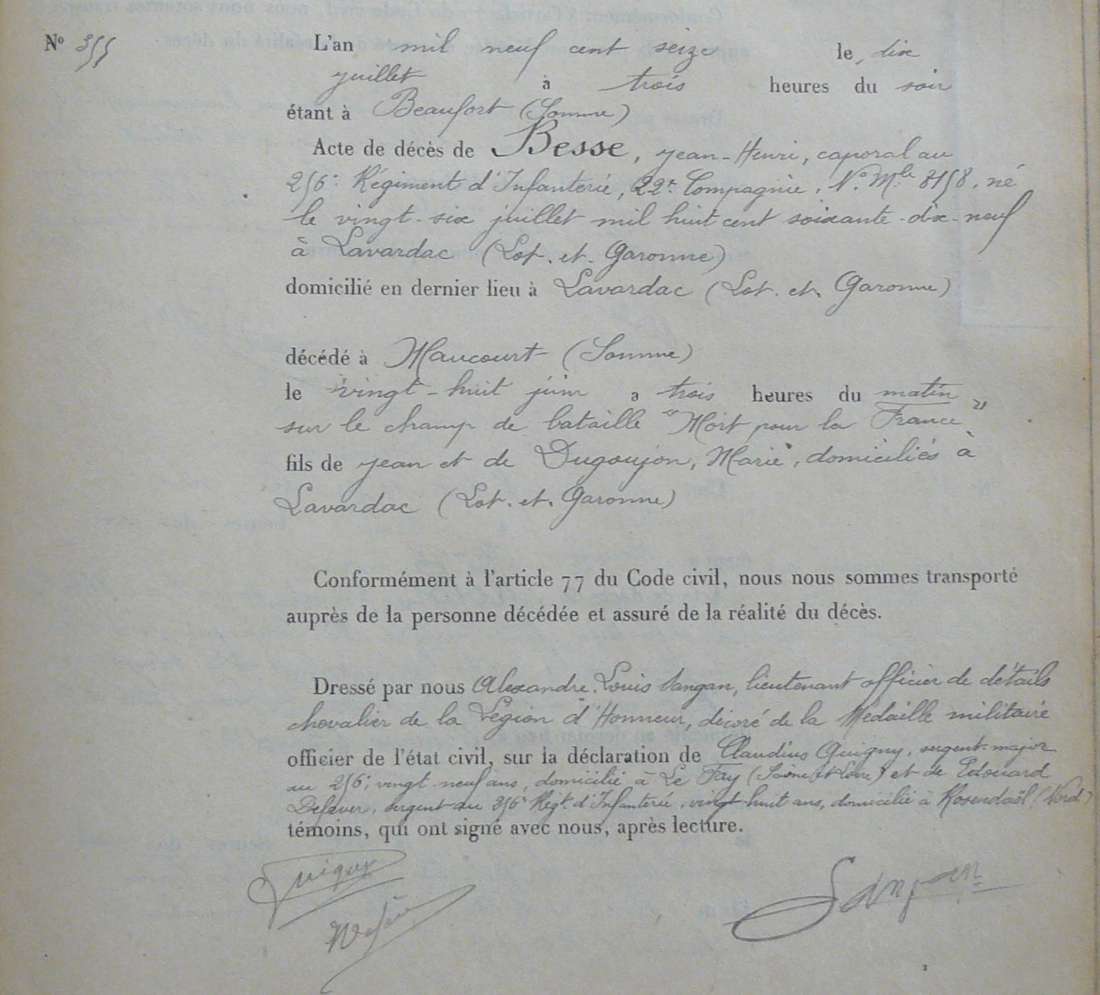 N° 355
L'an mil neuf cent seize le dix
juillet à trois heures du soir
étant à Beaufort (Somme)
Acte de décès de Besse, Jean-Henri, caporal au
256e Régiment d'Infanterie, 22e Compagnie, N° Mle 8158, né
le vingt-six juillet mil huit cent soixante-dix-neuf
à Lavardac (Lot-et-Garonne)
domicilié en dernier lieu à Lavardac (Lot-et-Garonne)
décédé à Maucourt (Somme)
le vingt-huit juin à trois heures du matin
sur le champ de bataille "Mort pour la France"
fils de Jean et de Dugoujon, Marie, domiciliés à
Lavardac (Lot-et-Garonne)
Conformément à l'article 77 du Code civil, nous nous sommes transporté
auprès de la personne décédée et assuré de la réalité du décès.
Dressé par nous Alexandre, Louis Sangan, lieutenant officier de détails
chevalier de la Légion d'Honneur, décoré de la Médaille militaire
officier de l'état civil, sur la déclaration de Claudius Guigny, sergent-major
au 256e, vingt neuf ans, domicilié à Le Fay (Saône et Loire) et de Edouard
sergent au 256e Régt d'Infanterie, vingt huit ans, domicilié à Rosendaël (Nord)
témoins, qui ont signé avec nous, après lecture.